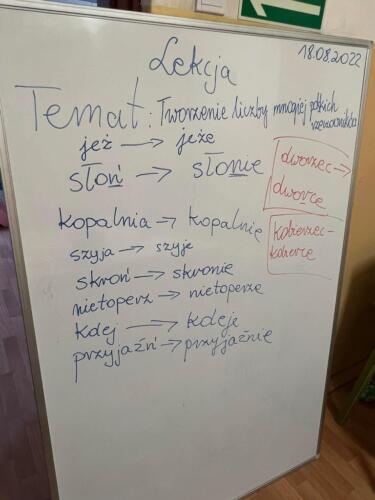 18.08.2022
Lekcja
Temat: Tworzenie liczby mnogiej polskich
rzeczowników
jeż → jeże
słoń → słonie
kopalnia → kopalnie
szyja → szyje
skroń → skronie
nietoperz → nietoperze
kdej → kdeje
przyjaźń → przyjaźnie
dworzec →
dworce
kobierzec -
kobierce